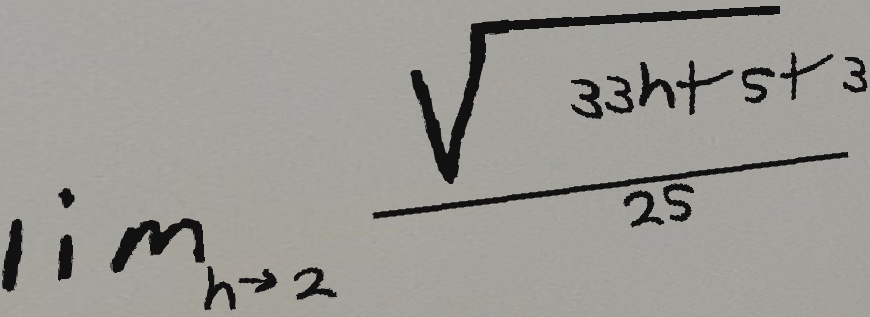 lim h→2 √33h+5+3
25